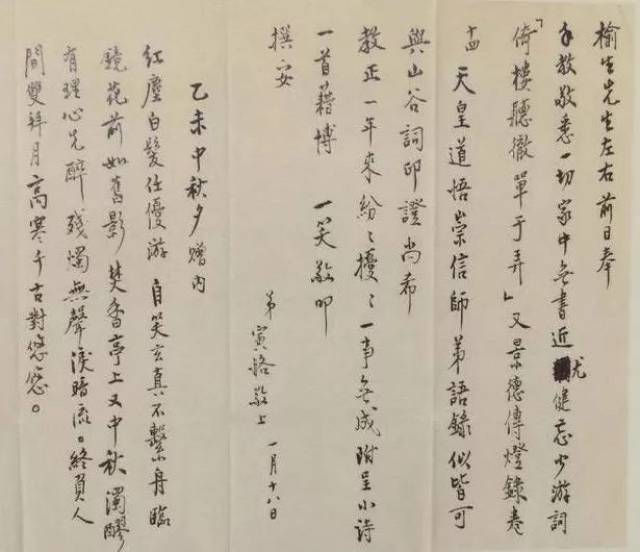 榆生先生左右前日奉
手教敬悉一切家中無書近尤健忘少游詞
「倚樓聽徹單于弄」又景德傳燈錄卷
十四天皇道悟崇信師弟語錄似皆可
與山谷詞印證尚希
教正一年來紛〻擾〻一事無成附呈小诗
一首藉博 一笑敬叩
撰安
弟 寅恪敬上 一月十八日
乙未中秋夕贈内
紅塵白髮任優游 自笑玄真不繫舟臨
鏡花前如舊影 焚香亭上又中秋濁醪
有理心先醉殘燭無聲淚暗流。終負人
間雙拜月高寒千古對悠悠。